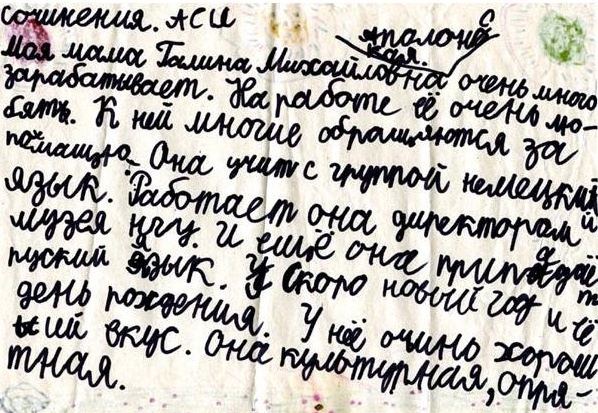 сочинения. АСИ Аполонс
кая.
моя мама Галина Михайловна очень много
зарабатывает. На работе её очень лю-
бять. К ней многие обращяются за
помащю. Она учит с группой немецкий
язык. Работает она директорам
музея нгу. И ещё она приподаёт
руский язык. У Скоро новый год и её
день рождения. У неё очинь хорош
ый вкус. Она культурная, опря-
тная.